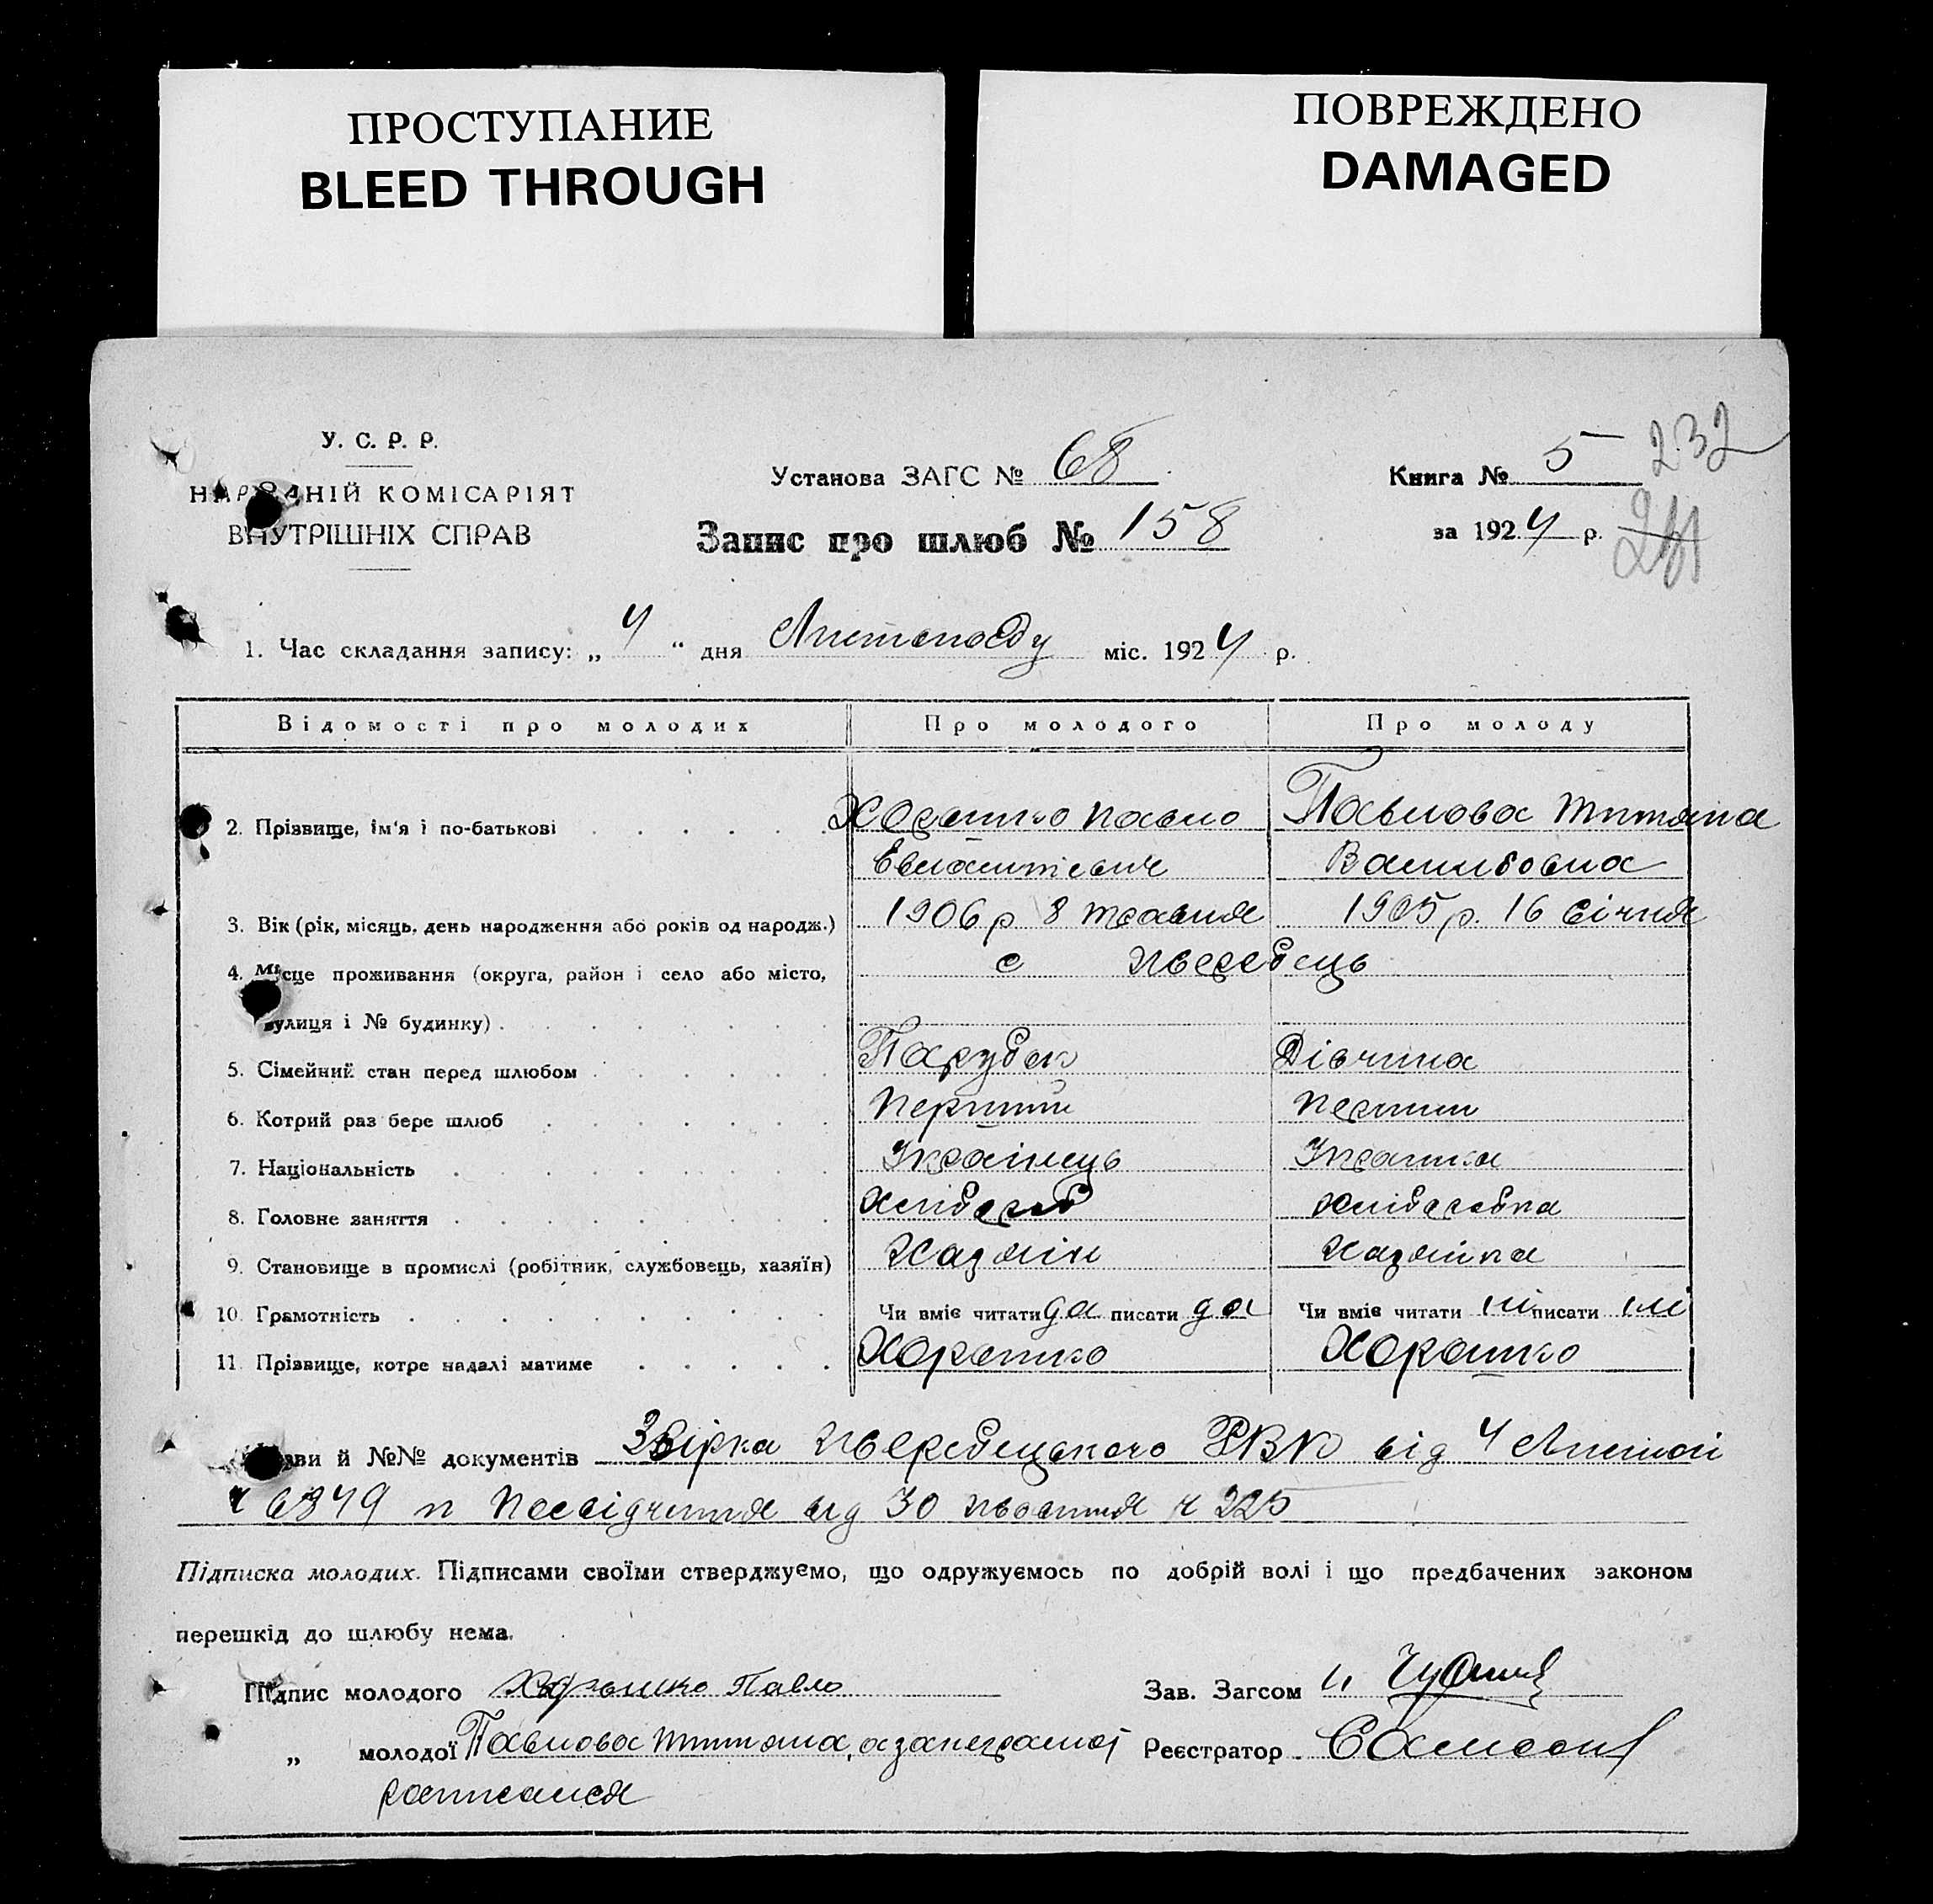 ПРОСТУПАНИЕ
BLEED THROUGH
ПОВРЕЖДЕНО
DAMAGED
У. С. Р. Р.
НАРОДНІЙ КОМІСАРІЯТ
ВНУТРІШНІХ СПРАВ
Установа ЗАГС № 68
Запис про шлюб № 158
Книга № 5 232
за 1924 р.
1. Час складання запису: „ 4 “ дня Листопаду міс. 1924 р.
Відомості про молодих Про молодого Про молоду
2. Прізвище, ім'я і по-батькові Хорошко Павло Павлова Титяна
Василовна
3. Вік (рік, місяць, день народження або років од народж.) 1906 р 8 травня 1905 р. 16 січня
4. Місце проживання (округа, район і село або місто, с
вулиця і № будинку)
5. Сімейний стан перед шлюбом Парубок Дівчина
6. Котрий раз бере шлюб перший перший
7. Національність Українець Українка
8. Головне заняття Хлібороб Хліборобка
9. Становище в промислі (робітник, службовець, хазяїн) Хазяїн Хазяйка
10. Грамотність Чи вміє читати да писати да Чи вміє читати ні писати ні
11. Прізвище, котре надалі матиме Хорошко Хорошко
ви й №№ документів РВК від 4 Листоп
6349 и Посвідчення від 30 жовтня ч 225
Підписка молодих. Підписами своїми стверджуємо, що одружуємось по добрій волі і що предбачених законом
перешкід до шлюбу нема.
Підпис молодого Хорошко Павло Зав. Загсом
„ молодої Павлова Титяна, а за неграмот Реєстратор
росписался